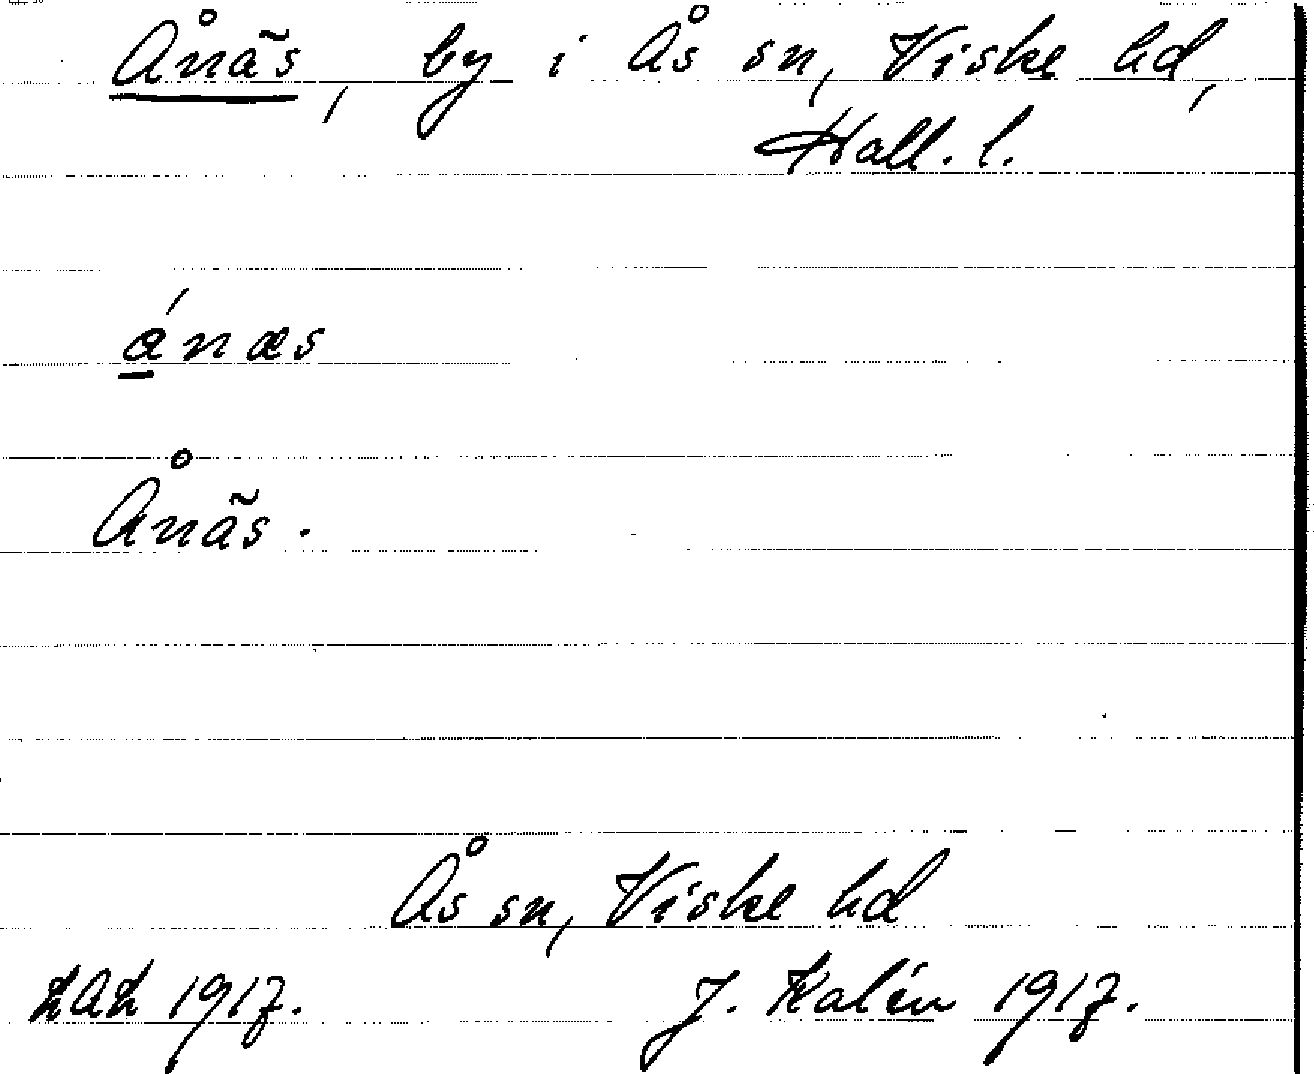 Ånäs, by i Ås sn, Viske hd,
Hall. l.
á̲næs
Ånäs.
Ås sn, Viske hd
LAL 1917. J. Kalén 1917.